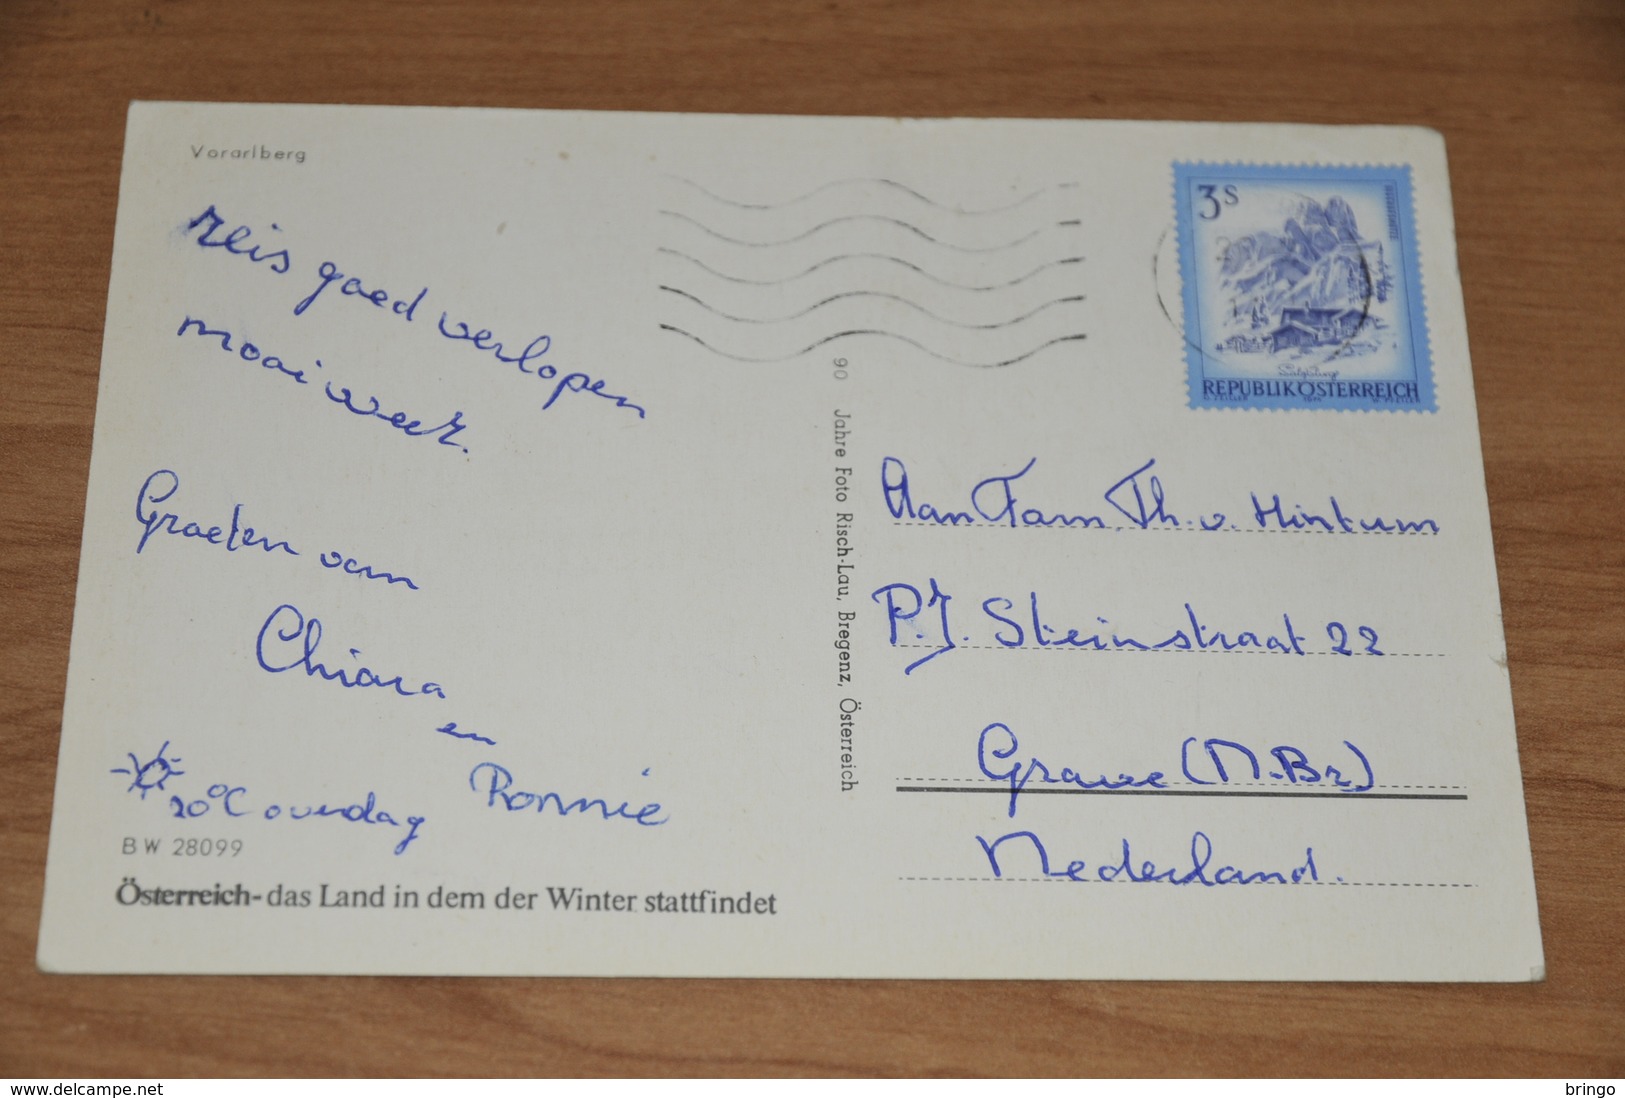 Vorarlberg
reis goed verlopen
mooi weer.
Groeten van
Chiara
en
Ronnie
20°C overdag
BW 28099
Österreich- das Land in dem der Winter stattfindet
90 Jahre Foto Risch-Lau, Bregenz, Österreich
3S
REPUBLIK ÖSTERREICH
Aan Fam. Th. v. Hintum
P.J. Steinstraat 22
Grave (N.Br)
Nederland.
www.delcampe.net
bringo